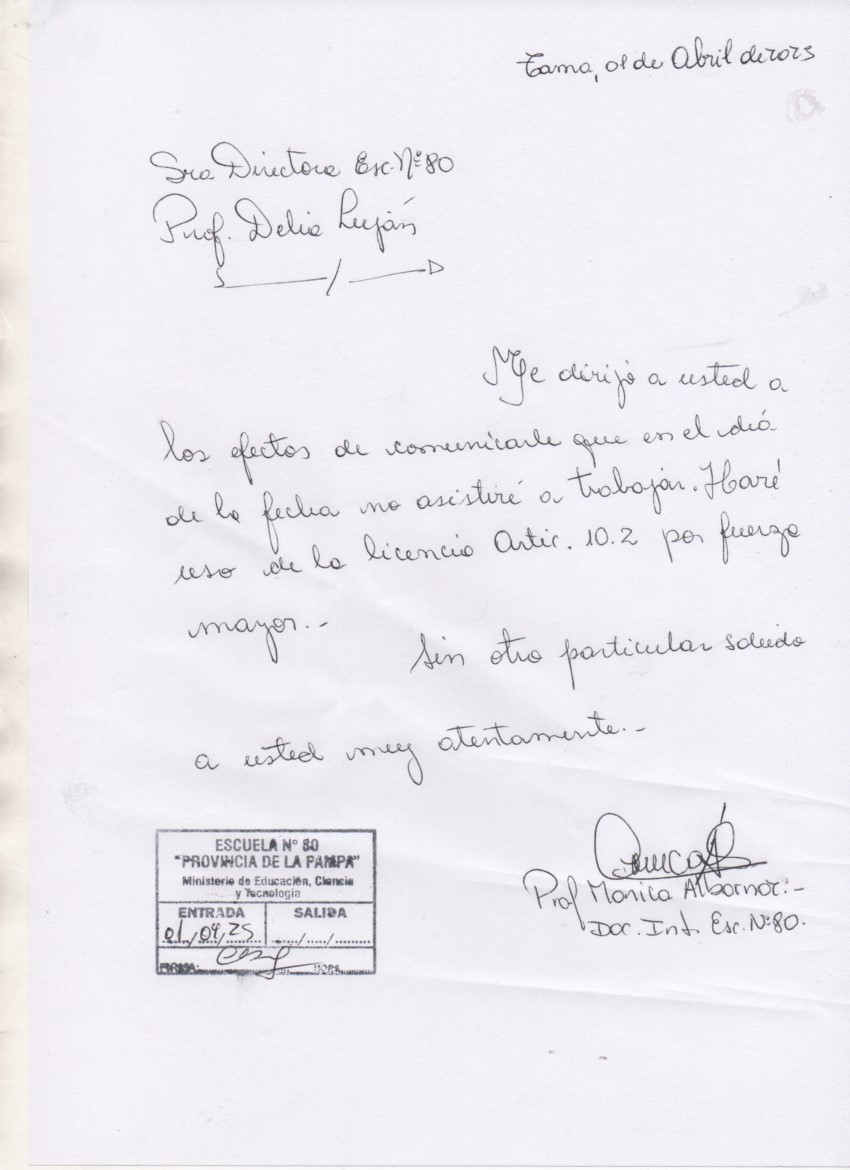 Tama, 01 de Abril de 2025
Sra Directora Esc. Nº 80
Prof. Delia Luján
Me dirijo a usted a
los efectos de comunicarle que en el día
de la fecha no asistiré a trabajar. Haré
uso de la licencia Artic. 10.2 por fuerza
mayor.-
Sin otro particular saludo
a usted muy atentamente.-
Prof Monica Albornoz.-
Doc. Int. Esc. Nº 80.
ESCUELA Nº 80
"PROVINCIA DE LA PAMPA"
Ministerio de Educación, Ciencia
y Tecnología
ENTRADA SALIDA
01/04/25 .../.../...
FIRMA: HORA